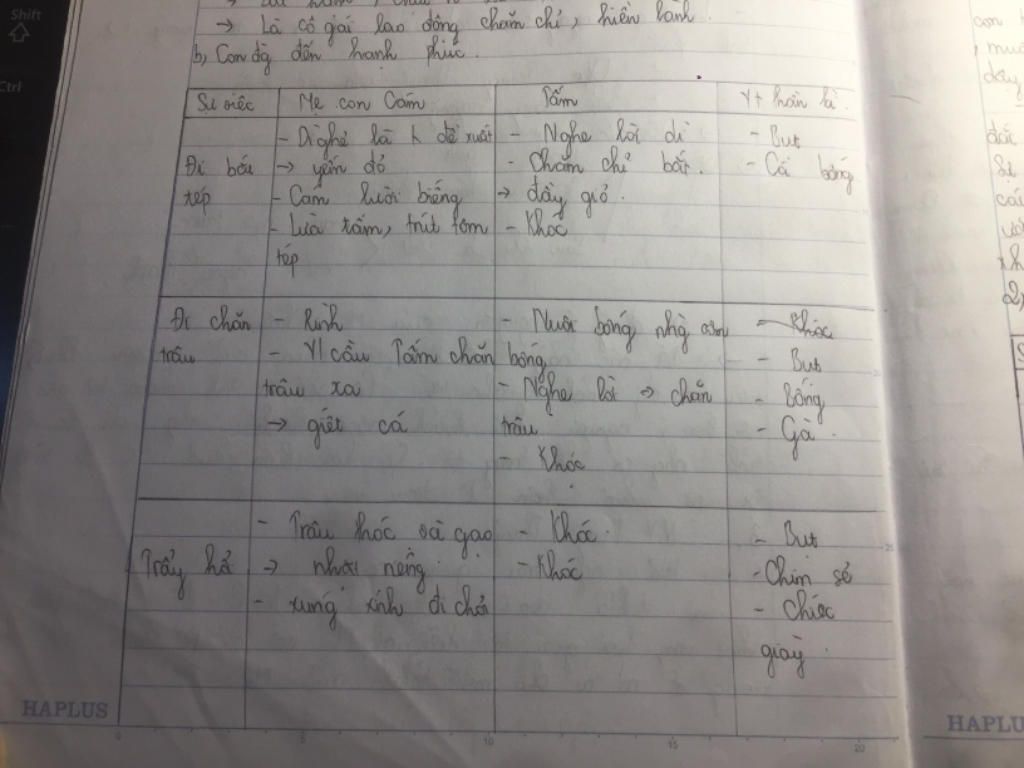 → Là cô gái lao động chăm chỉ, hiền lành.
b, Con đg đến hạnh phúc.
Sự việc | Mẹ con Cám | Tấm | Yt thần là.
- Dì ghẻ là k đề xuất | - Nghe lời dì | - Bụt
Đi bắt | → yếm đỏ | - Chăm chỉ bắt. | - Cá bống
tép | - Cám lười biếng | → đầy giỏ.
- Lừa tấm, trút tôm | - Khóc
tép
Đi chăn | - Rình | - Nuôi bống nhg cơm | - Khóc
trâu | - Y/ cầu Tấm chăn | bống | - Bụt
trâu xa | - Nghe lời → chăn | - Bống
→ giết cá | trâu | - Gà.
- Khóc
- Trâu thóc và gạo | - Khóc. | - Bụt
Trẩy hả | → nhơi niêng. | - Khóc | - Chim sẻ
- xúng xính đi chơi | - Chiếc
giày.
HAPLUS
0 5 10 15 20
Shift
Ctrl
HAPLUS